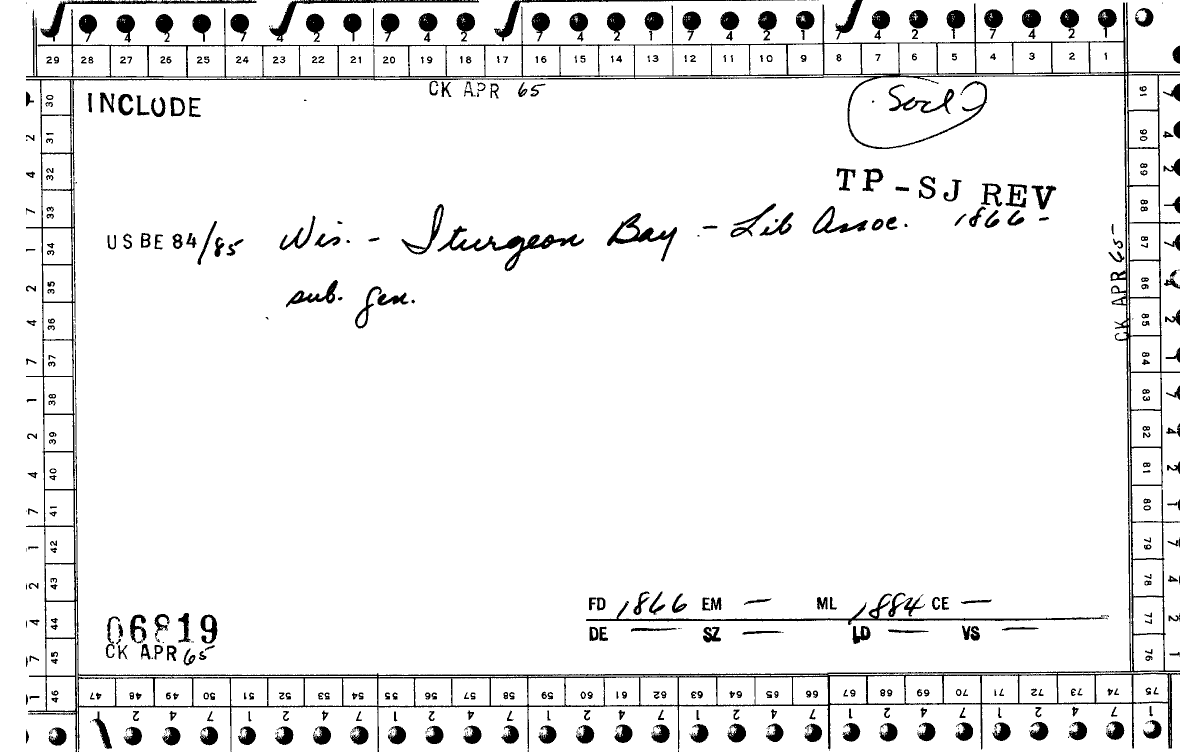 7 4 2 1 7 4 2 1 7 4 2 1 7 4 2 1
29 28 27 26 25 24 23 22 21 20 19 18 17 16 15 14 13 12 11 10 9 8 7 6 5 4 3 2 1
CK APR 65
INCLUDE
TP-SJ REV
USBE 84/85 Wis. - Sturgeon Bay - Lib Assoc. 1866 -
sub. gen.
CK APR 65
FD 1866 EM — ML 1884 CE —
DE — SZ — LD — VS —
06819
CK APR 65
30 31 32 33 34 35 36 37 38 39 40 41 42 43 44 45 46
91 90 89 88 87 86 85 84 83 82 81 80 79 78 77 76 75
47 48 49 50 51 52 53 54 55 56 57 58 59 60 61 62 63 64 65 66 67 68 69 70 71 72 73 74 75